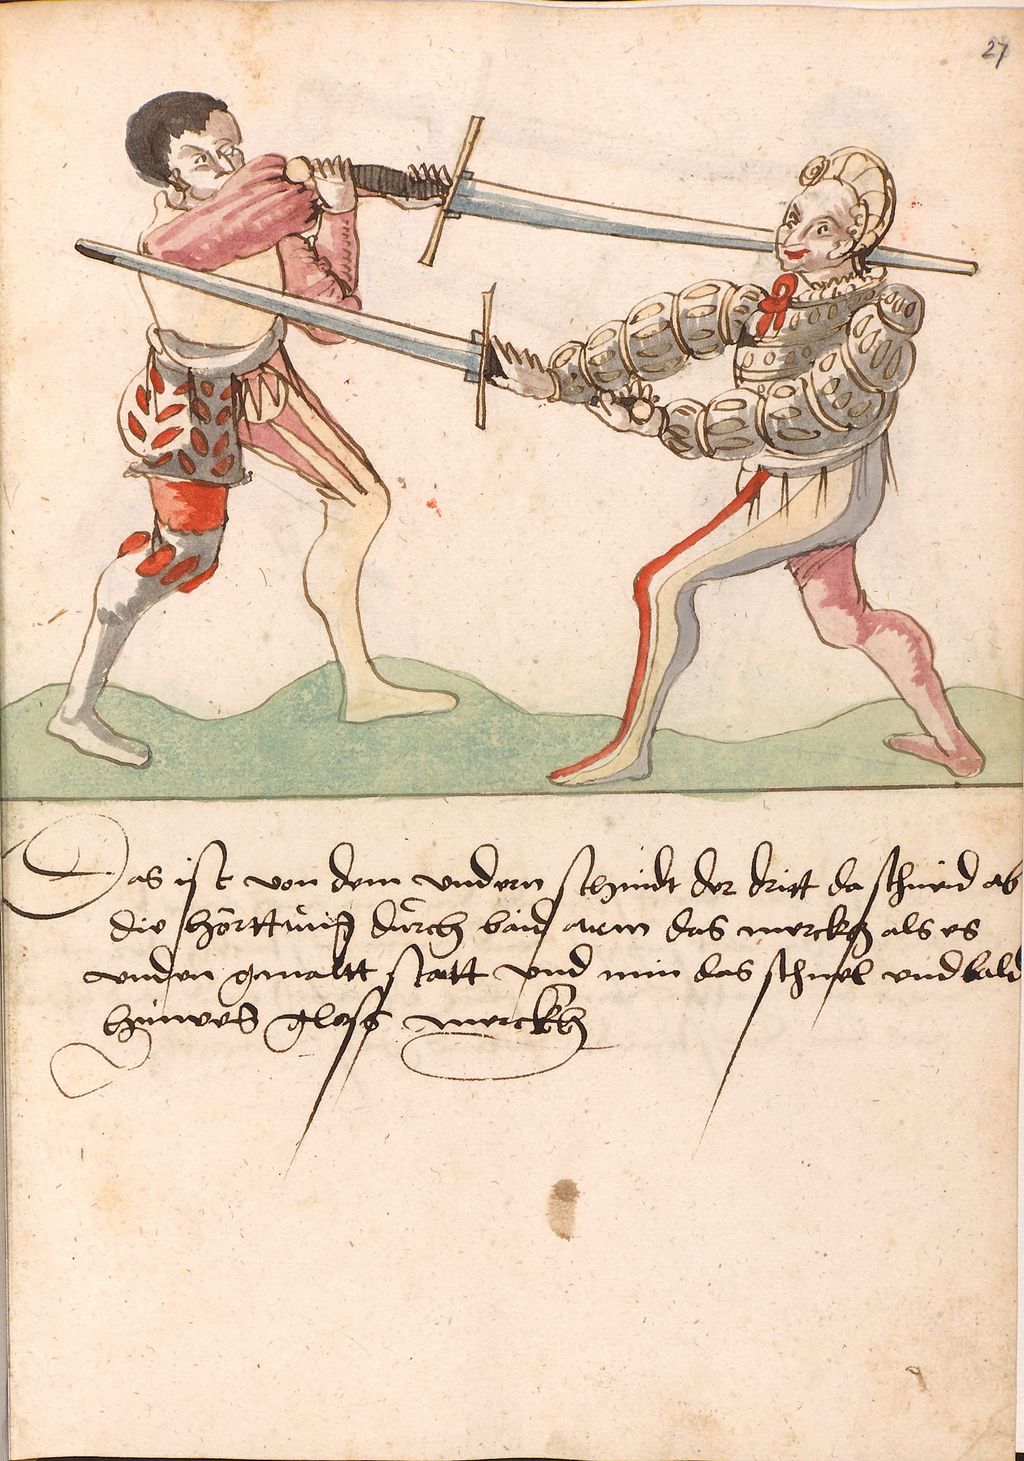 27
Das ist von dem vndern schnidt der dritt da schneid ab
die hörttnuß durch baid arem das merckh als es
vnden gmaltt statt vnd nim das schnel vnd bald
hinweg gloss merckh